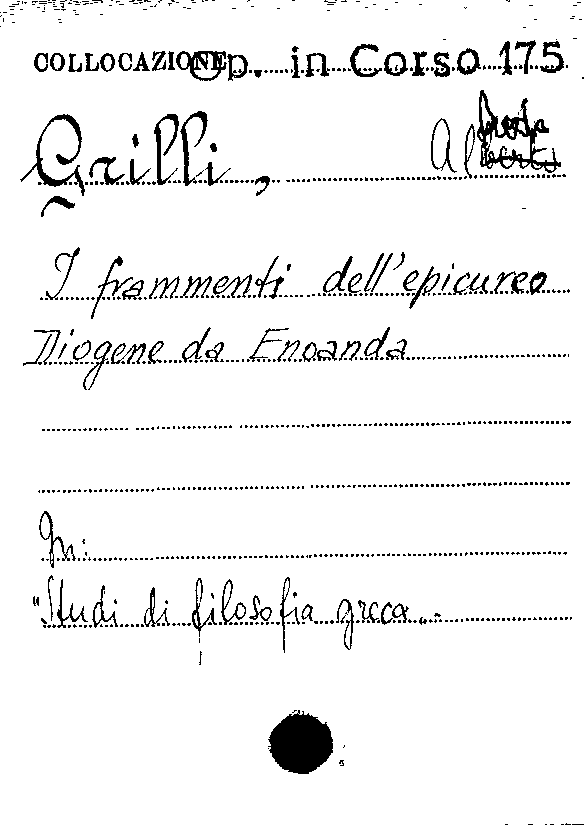 COLLOCAZIONE Op. in Corso 175
Grilli, Al
I frammenti dell'epicureo
Diogene da Enoanda
In:
"Studi di filosofia greca".